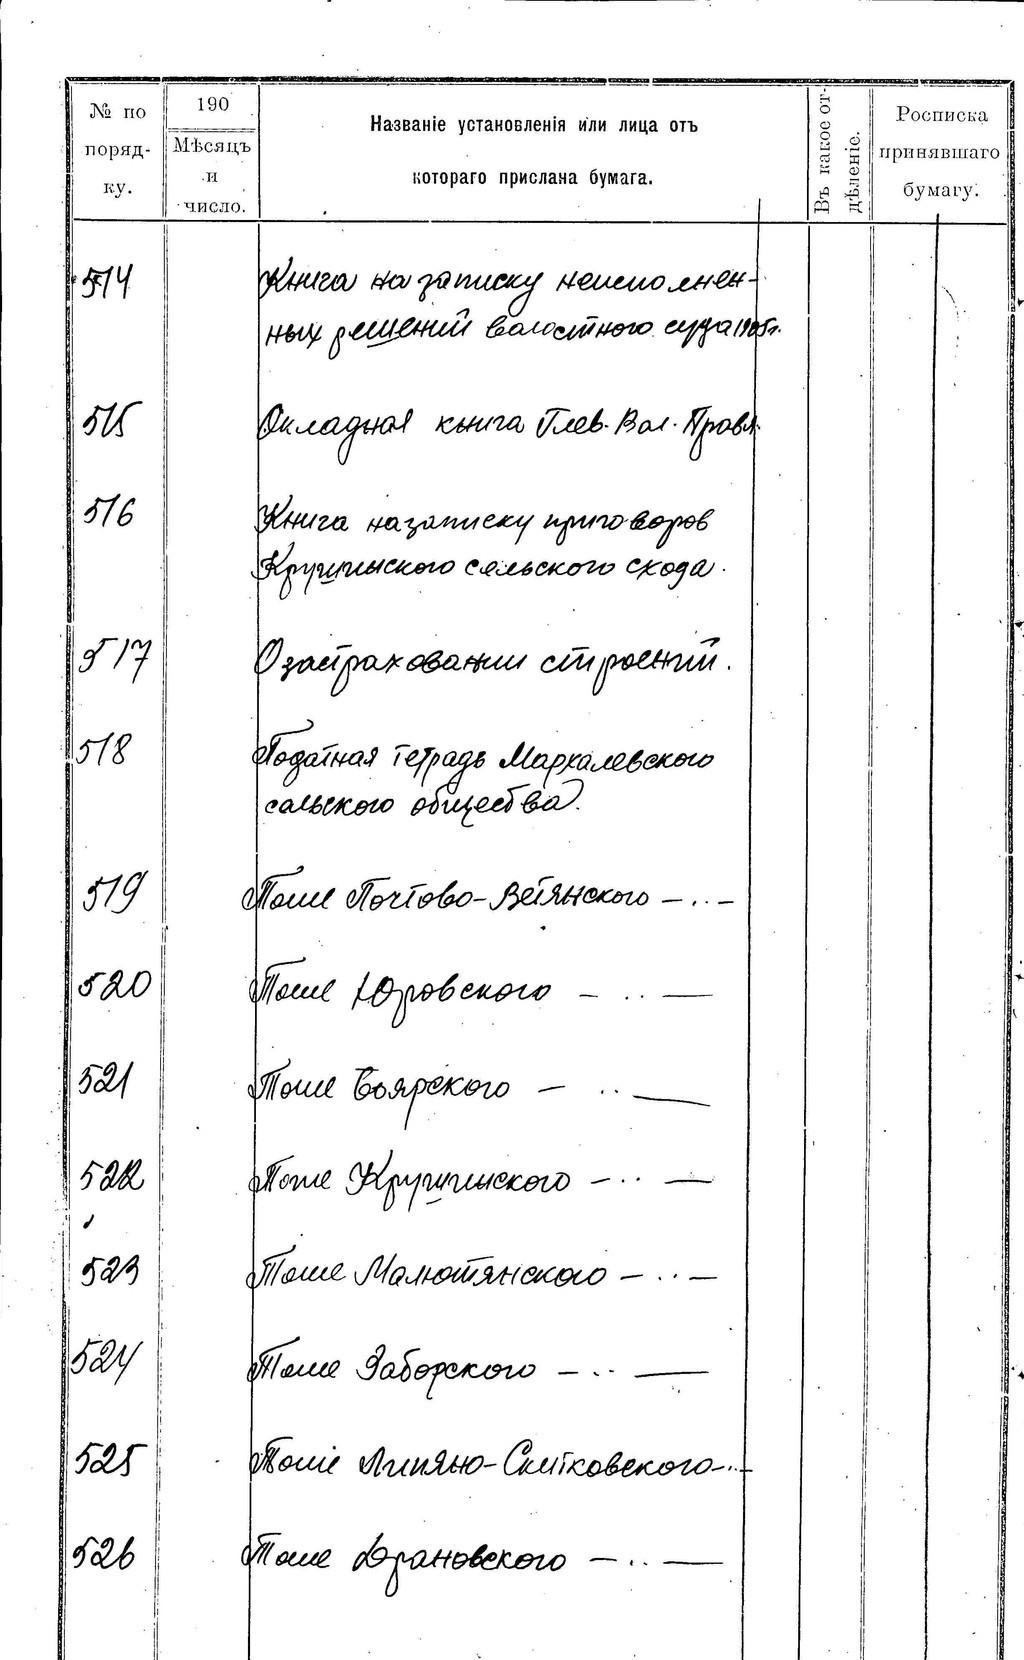 № по поряд-ку.
190
Мѣсяцъ и число.
Названіе установленія или лица отъ
котораго прислана бумага.
Въ какое от-дѣленіе.
Росписка принявшаго бумагу.
514 Книга на записку неисполнен-
ных решений волостного суда 1905г.
515 Окладная книга Глев. Вол. Правл.
516 Книга на записку приговоров
Крушинского сельского схода.
517 О застраховании строений.
518 Податная тетрадь Мархалевского
сельского общества.
519 Тоше Почтово-Ветянского — .. —
520 Тоше Юровского — .. —
521 Тоше Боярского — .. —
522 Тоше Крушинского — .. —
523 Тоше Малютянского — .. —
524 Тоше Заборского — .. —
525 Тоше Липяно-Скитковского — .. —
526 Тоше — .. —